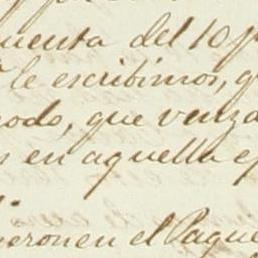 cuenta del 10 p
le escribimos, q
modo, que venza
s en aquella ep
eron en el Paque